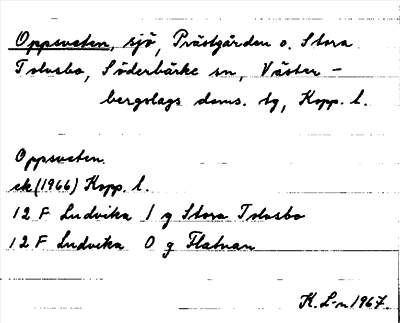 Oppsveten, sjö, Prästgården o. Stora
Tolvsbo, Söderbärke sn, Väster-
bergslags doms. tg, Kopp. l.
Oppsveten
ek (1966) Kopp. l.
12 F Ludvika 1 g Stora Tolvsbo
12 F Ludvika 0 g Flatnan
K. L-n 1967.